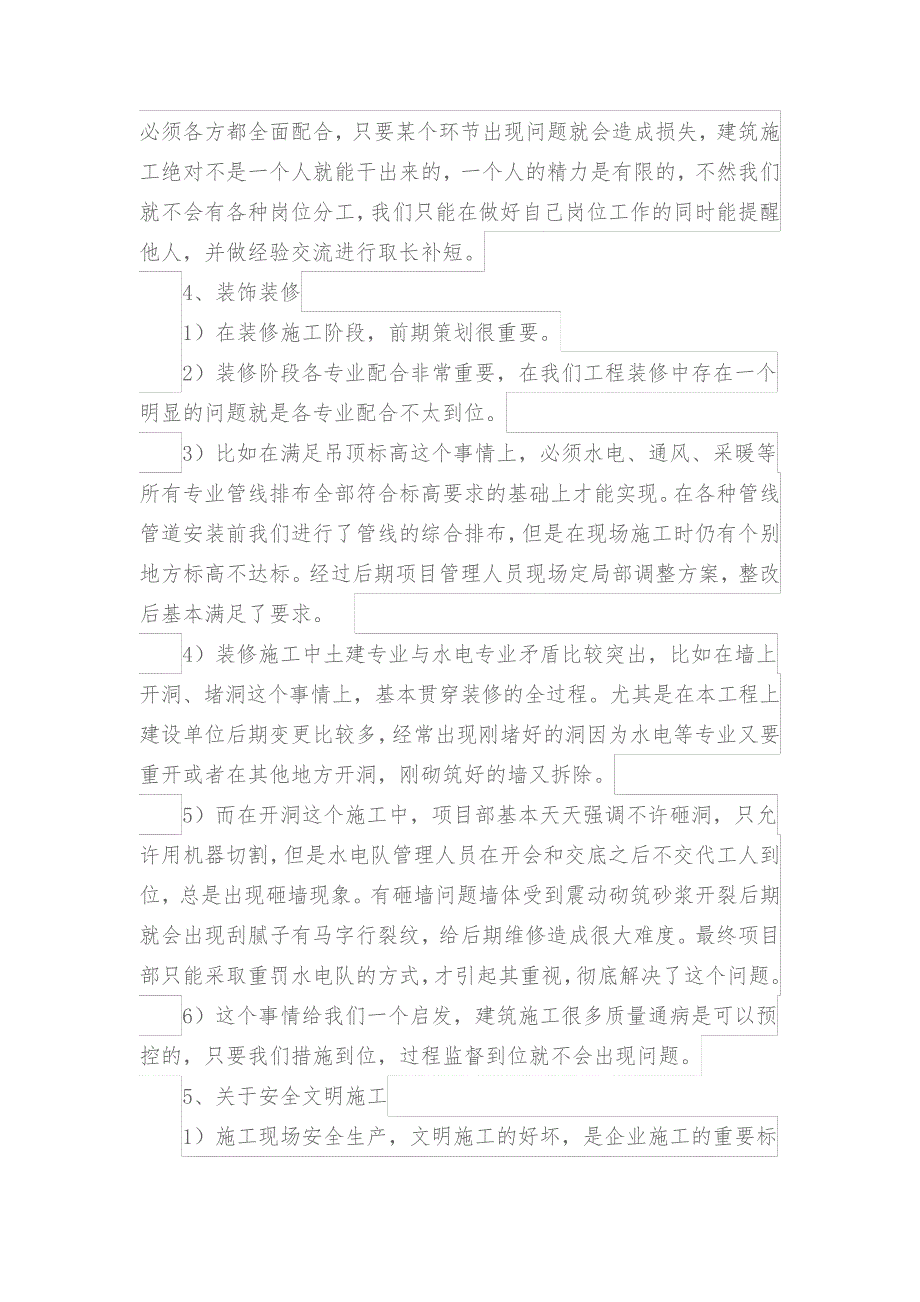 必须各方都全面配合，只要某个环节出现问题就会造成损失，建筑施
工绝对不是一个人就能干出来的，一个人的精力是有限的，不然我们
就不会有各种岗位分工，我们只能在做好自己岗位工作的同时能提醒
他人，并做经验交流进行取长补短。
4、装饰装修
1）在装修施工阶段，前期策划很重要。
2）装修阶段各专业配合非常重要，在我们工程装修中存在一个
明显的问题就是各专业配合不太到位。
3）比如在满足吊顶标高这个事情上，必须水电、通风、采暖等
所有专业管线排布全部符合标高要求的基础上才能实现。在各种管线
管道安装前我们进行了管线的综合排布，但是在现场施工时仍有个别
地方标高不达标。经过后期项目管理人员现场定局部调整方案，整改
后基本满足了要求。
4）装修施工中土建专业与水电专业矛盾比较突出，比如在墙上
开洞、堵洞这个事情上，基本贯穿装修的全过程。尤其是在本工程上
建设单位后期变更比较多，经常出现刚堵好的洞因为水电等专业又要
重开或者在其他地方开洞，刚砌筑好的墙又拆除。
5）而在开洞这个施工中，项目部基本天天强调不许砸洞，只允
许用机器切割，但是水电队管理人员在开会和交底之后不交代工人到
位，总是出现砸墙现象。有砸墙问题墙体受到震动砌筑砂浆开裂后期
就会出现刮腻子有马字行裂纹，给后期维修造成很大难度。最终项目
部只能采取重罚水电队的方式，才引起其重视，彻底解决了这个问题。
6）这个事情给我们一个启发，建筑施工很多质量通病是可以预
控的，只要我们措施到位，过程监督到位就不会出现问题。
5、关于安全文明施工
1）施工现场安全生产，文明施工的好坏，是企业施工的重要标